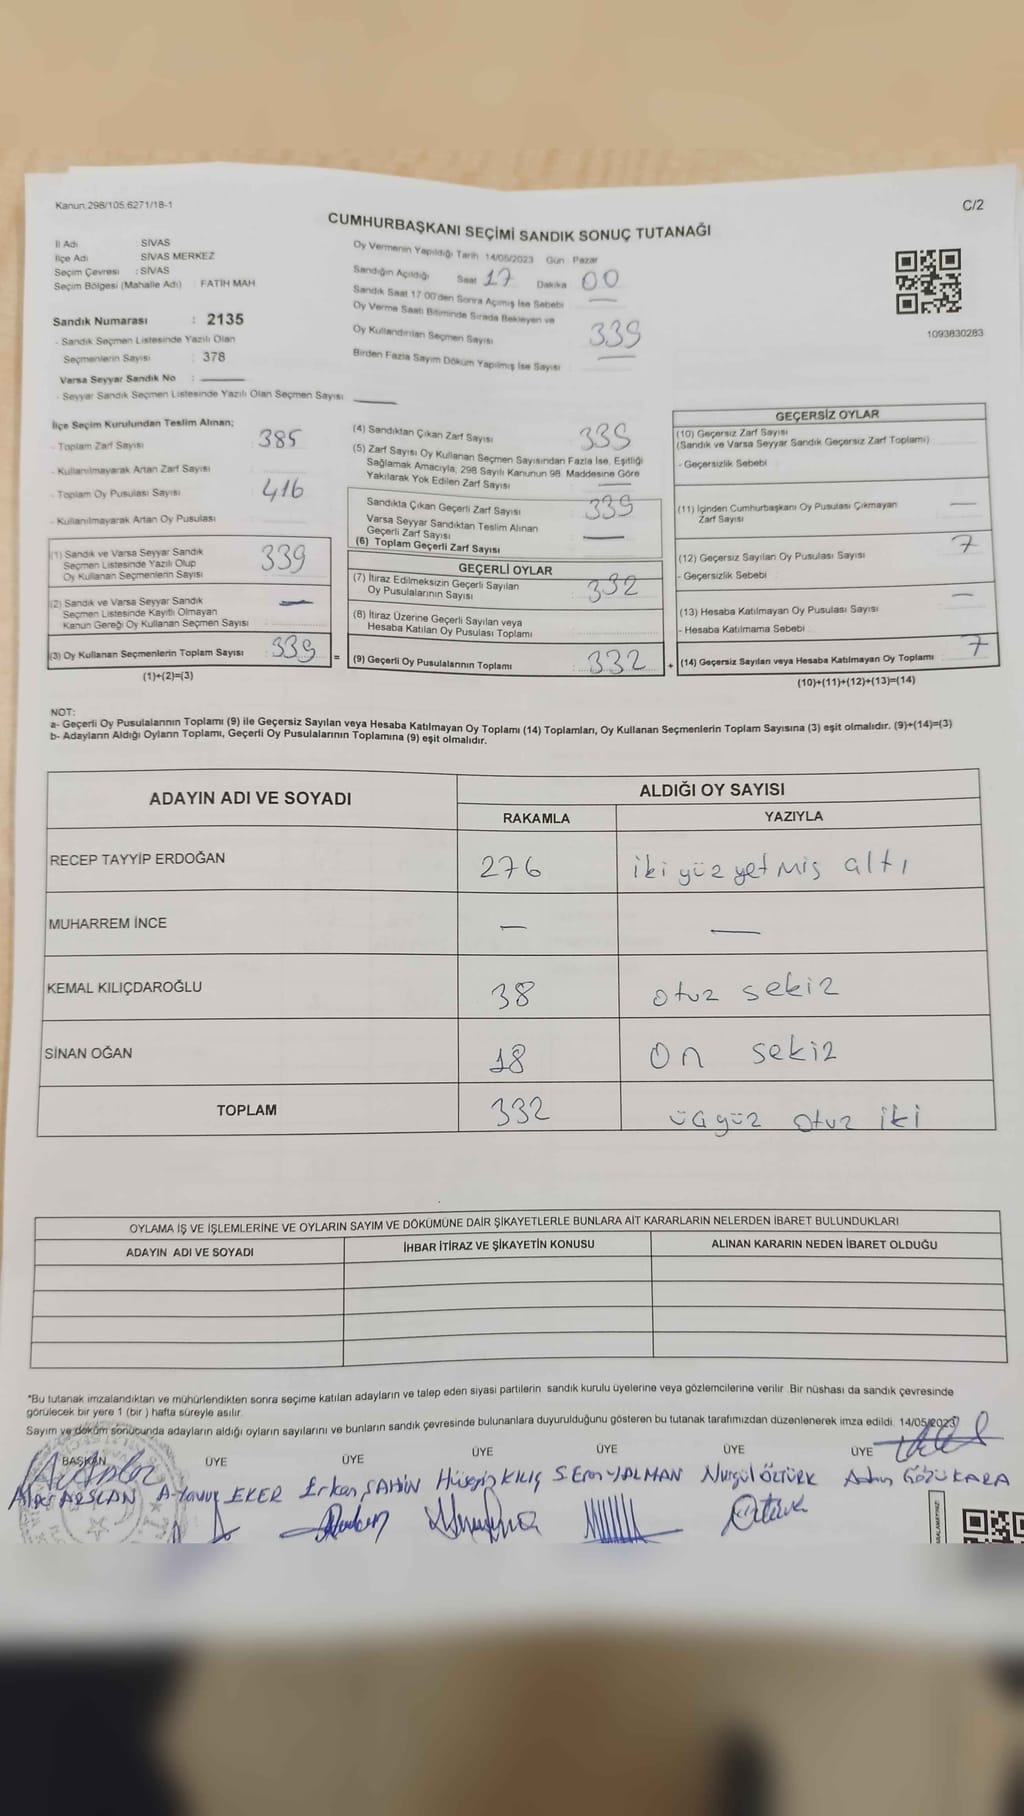 Kanun,298/105,6271/18-1
C/2
CUMHURBAŞKANI SEÇİMİ SANDIK SONUÇ TUTANAĞI
İl Adı SİVAS
İlçe Adı SİVAS MERKEZ
Seçim Çevresi : SİVAS
Seçim Bölgesi (Mahalle Adı) FATİH MAH
Sandık Numarası : 2135
- Sandık Seçmen Listesinde Yazılı Olan
Seçmenlerin Sayısı : 378
Varsa Seyyar Sandık No :
- Seyyar Sandık Seçmen Listesinde Yazılı Olan Seçmen Sayısı
Oy Vermenin Yapıldığı Tarih 14/05/2023 Gün Pazar
Sandığın Açıldığı Saat 17 Dakika 00
Sandık Saat 17:00'den Sonra Açımış İse Sebebi —
Oy Verme Saati Bitiminde Sırada Bekleyen ve
Oy Kullandırılan Seçmen Sayısı 339
Birden Fazla Sayım Döküm Yapılmış İse Sayısı —
1093830283
İlçe Seçim Kurulundan Teslim Alınan;
- Toplam Zarf Sayısı 385
- Kullanılmayarak Artan Zarf Sayısı
- Toplam Oy Pusulası Sayısı 416
- Kullanılmayarak Artan Oy Pusulası
(1) Sandık ve Varsa Seyyar Sandık
Seçmen Listesinde Yazılı Olup
Oy Kullanan Seçmenlerin Sayısı 339
(2) Sandık ve Varsa Seyyar Sandık
Seçmen Listesinde Kayıtlı Olmayan
Kanun Gereği Oy Kullanan Seçmen Sayısı —
(3) Oy Kullanan Seçmenlerin Toplam Sayısı 339 =
(1)+(2)=(3)
(4) Sandıktan Çıkan Zarf Sayısı 339
(5) Zarf Sayısı Oy Kullanan Seçmen Sayısından Fazla İse, Eşitliği
Sağlamak Amacıyla, 298 Sayılı Kanunun 98. Maddesine Göre
Yakılarak Yok Edilen Zarf Sayısı —
Sandıkta Çıkan Geçerli Zarf Sayısı 339
Varsa Seyyar Sandıktan Teslim Alınan
Geçerli Zarf Sayısı —
(6) Toplam Geçerli Zarf Sayısı
GEÇERLİ OYLAR
(7) İtiraz Edilmeksizin Geçerli Sayılan
Oy Pusulalarının Sayısı 332
(8) İtiraz Üzerine Geçerli Sayılan veya
Hesaba Katılan Oy Pusulası Toplamı
(9) Geçerli Oy Pusulalarının Toplamı 332 +
GEÇERSİZ OYLAR
(10) Geçersiz Zarf Sayısı
(Sandık ve Varsa Seyyar Sandık Geçersiz Zarf Toplamı)
- Geçersizlik Sebebi
(11) İçinden Cumhurbaşkanı Oy Pusulası Çıkmayan
Zarf Sayısı —
(12) Geçersiz Sayılan Oy Pusulası Sayısı 7
- Geçersizlik Sebebi
(13) Hesaba Katılmayan Oy Pusulası Sayısı —
- Hesaba Katılmama Sebebi
(14) Geçersiz Sayılan veya Hesaba Katılmayan Oy Toplamı 7
(10)+(11)+(12)+(13)=(14)
NOT:
a- Geçerli Oy Pusulalarının Toplamı (9) ile Geçersiz Sayılan veya Hesaba Katılmayan Oy Toplamı (14) Toplamları, Oy Kullanan Seçmenlerin Toplam Sayısına (3) eşit olmalıdır. (9)+(14)=(3)
b- Adayların Aldığı Oyların Toplamı, Geçerli Oy Pusulalarının Toplamına (9) eşit olmalıdır.
ADAYIN ADI VE SOYADI ALDIĞI OY SAYISI
RAKAMLA YAZIYLA
RECEP TAYYİP ERDOĞAN 276 iki yüz yetmiş altı
MUHARREM İNCE — —
KEMAL KILIÇDAROĞLU 38 otuz sekiz
SİNAN OĞAN 18 on sekiz
TOPLAM 332 üçyüz otuz iki
OYLAMA İŞ VE İŞLEMLERİNE VE OYLARIN SAYIM VE DÖKÜMÜNE DAİR ŞİKAYETLERLE BUNLARA AİT KARARLARIN NELERDEN İBARET BULUNDUKLARI
ADAYIN ADI VE SOYADI İHBAR İTİRAZ VE ŞİKAYETİN KONUSU ALINAN KARARIN NEDEN İBARET OLDUĞU
*Bu tutanak imzalandıktan ve mühürlendikten sonra seçime katılan adayların ve talep eden siyasi partilerin sandık kurulu üyelerine veya gözlemcilerine verilir .Bir nüshası da sandık çevresinde
görülecek bir yere 1 (bir ) hafta süreyle asılır.
Sayım ve döküm sonucunda adayların aldığı oyların sayılarını ve bunların sandık çevresinde bulunanlara duyurulduğunu gösteren bu tutanak tarafımızdan düzenlenerek imza edildi. 14/05/2023
BAŞKAN ÜYE ÜYE ÜYE ÜYE ÜYE ÜYE
ARSLAN A.Yavuz EKER Erkan ŞAHİN Hüseyin KILIÇ S.Eren YALMAN Nurgül ÖZTÜRK GÖZÜKARA